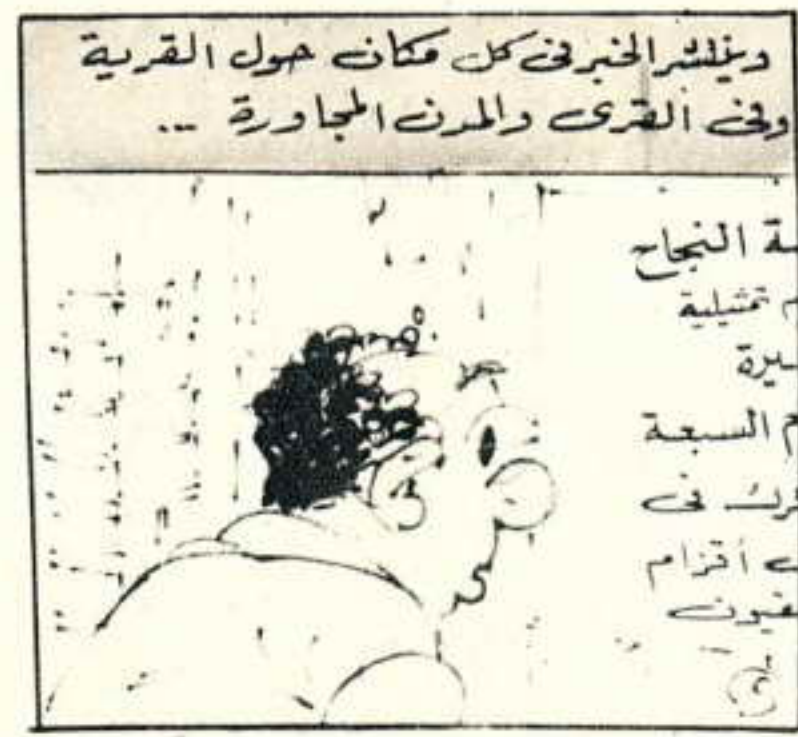 وينتشر الخبر فى كل مكان حول القرية
وفى القرى والمدن المجاورة ...
ـة النجاح
م تمثيلية
ـيرة
م السبعة
ـرك فى
أقزام